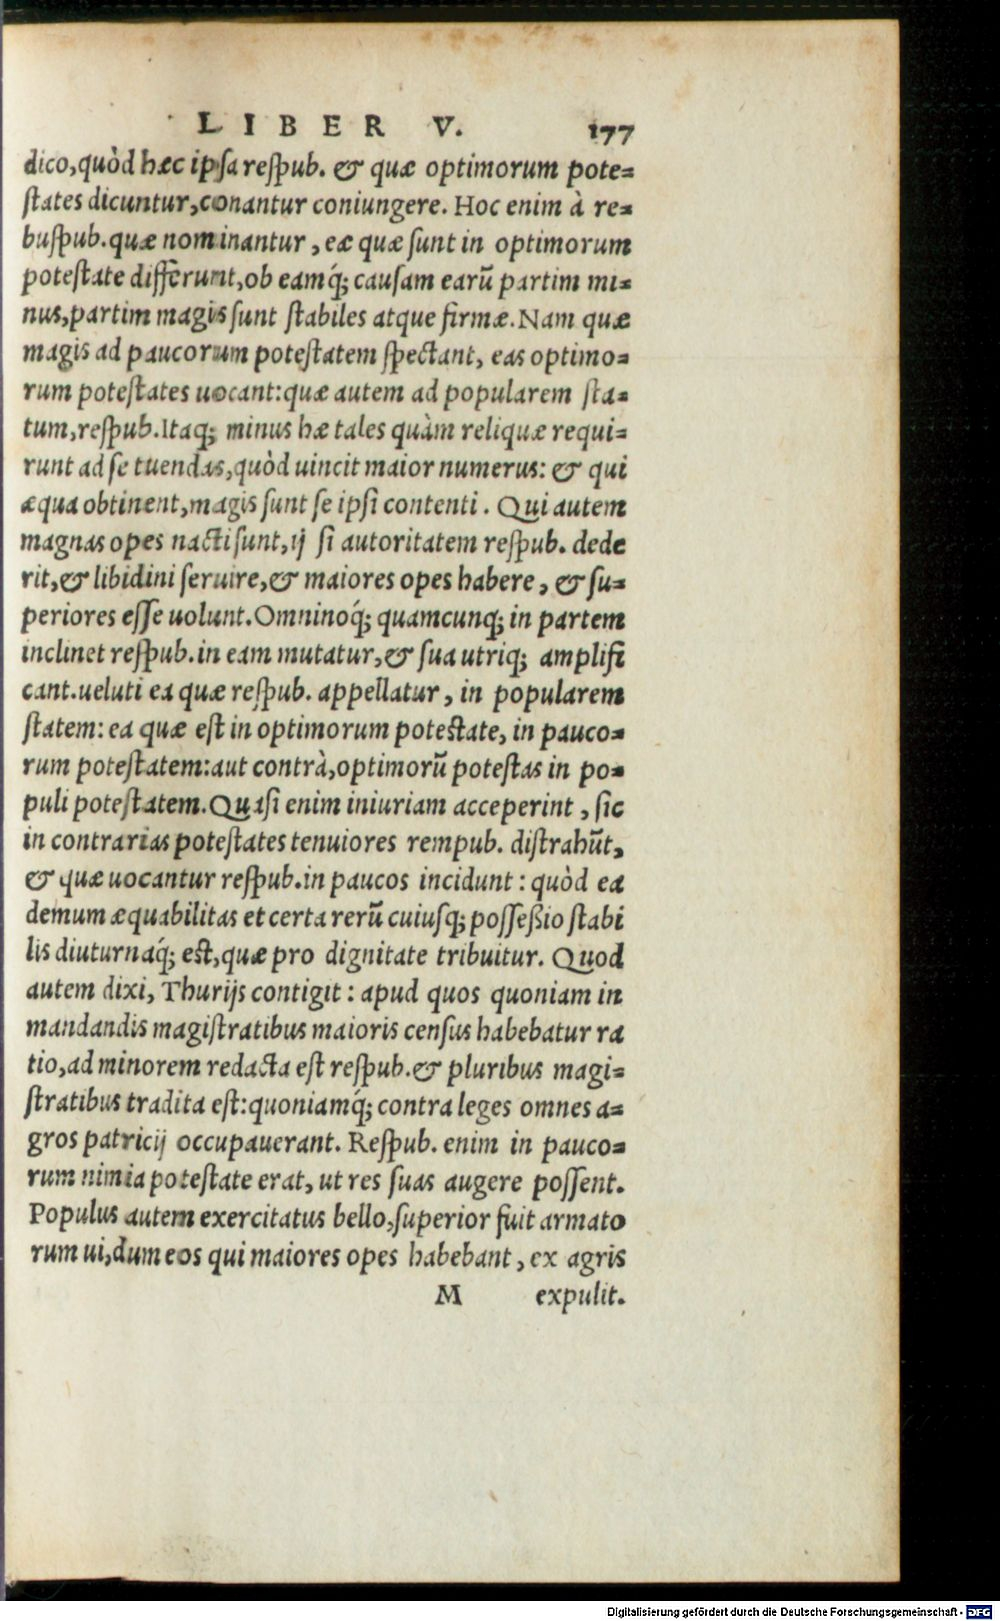 LIBER V. 177
dico,quòd hæc ipsa respub. & quæ optimorum pote=
states dicuntur,conantur coniungere. Hoc enim à re=
buspub.quæ nominantur, eæ quæ sunt in optimorum
potestate differunt,ob eamq́; causam earũ partim mi=
nus,partim magis sunt stabiles atque firmæ.Nam quæ
magis ad paucorum potestatem spectant, eas optimo=
rum potestates uocant:quæ autem ad popularem sta=
tum,respub.Itaq; minus hæ tales quàm reliquæ requi=
runt ad se tuendas,quòd uincit maior numerus: & qui
æqua obtinent,magis sunt se ipsi contenti. Qui autem
magnas opes nacti sunt,ij si autoritatem respub. dede
rit,& libidini seruire,& maiores opes habere, & su=
periores esse uolunt.Omninoq́; quamcunq; in partem
inclinet respub.in eam mutatur,& sua utriq; amplifi
cant.ueluti ea quæ respub. appellatur, in popularem
statem: ea quæ est in optimorum potestate, in pauco=
rum potestatem:aut contrà,optimorũ potestas in po=
puli potestatem.Quasi enim iniuriam acceperint, sic
in contrarias potestates tenuiores rempub. distrahũt,
& quæ uocantur respub.in paucos incidunt: quòd ea
demum æquabilitas et certa rerũ cuiusq; possessio stabi
lis diuturnaq́; est,quæ pro dignitate tribuitur. Quod
autem dixi, Thurijs contigit: apud quos quoniam in
mandandis magistratibus maioris census habebatur ra
tio,ad minorem redacta est respub.& pluribus magi=
stratibus tradita est:quoniamq́; contra leges omnes a=
gros patricij occupauerant. Respub. enim in pauco=
rum nimia potestate erat, ut res suas augere possent.
Populus autem exercitatus bello,superior fuit armato
rum ui,dum eos qui maiores opes habebant, ex agris
M expulit.
Digitalisierung gefördert durch die Deutsche Forschungsgemeinschaft - DFG